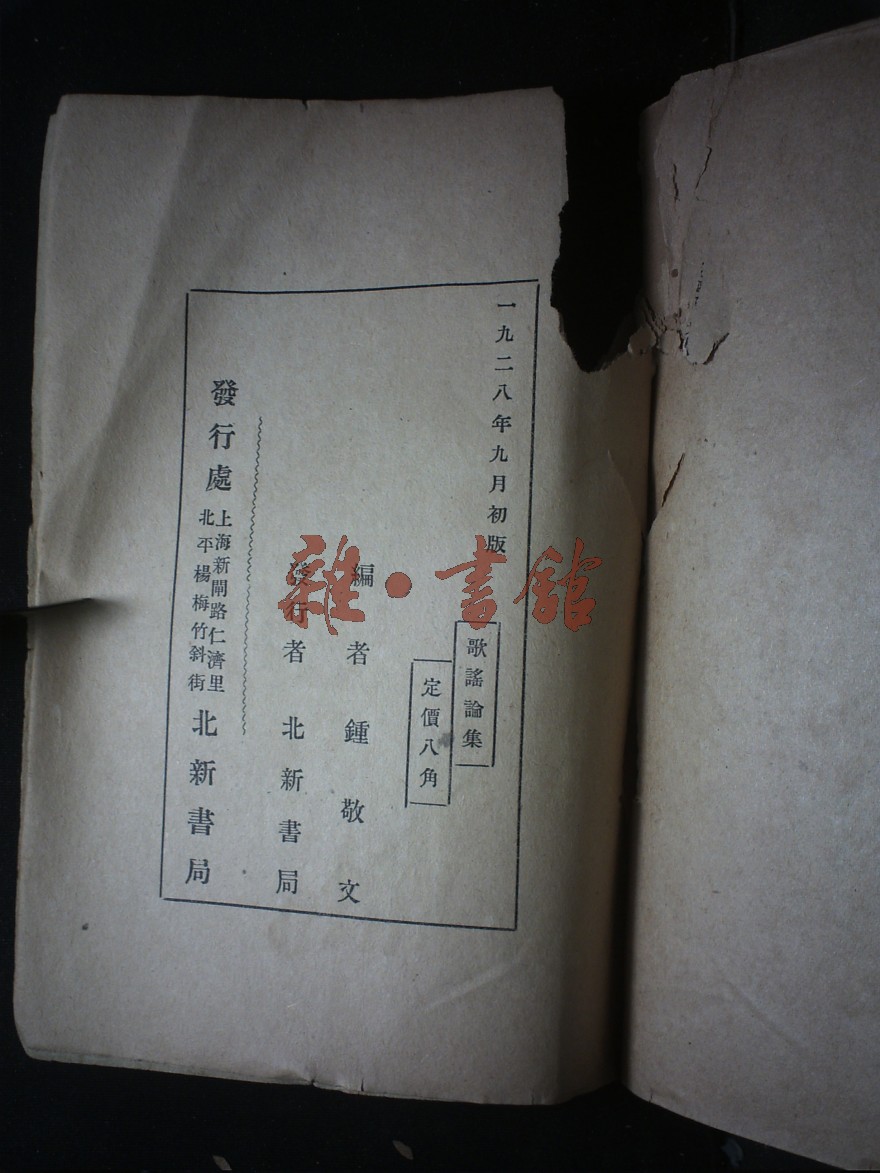 一九二八年九月初版
歌謠論集
定價八角
編者 鍾敬文
發行者 北新書局
發行處 上海新閘路仁濟里 北平楊梅竹斜街 北新書局
雜·書館